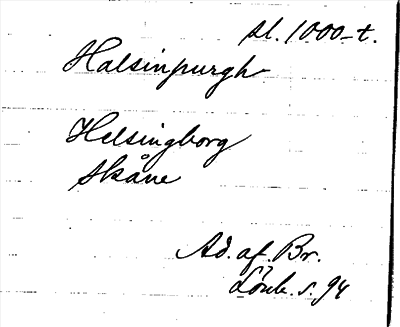 sl. 1000-t.
Halsinpurgh
Helsingborg
Skåne
Ad. af. Br.
Lönb. s. 94